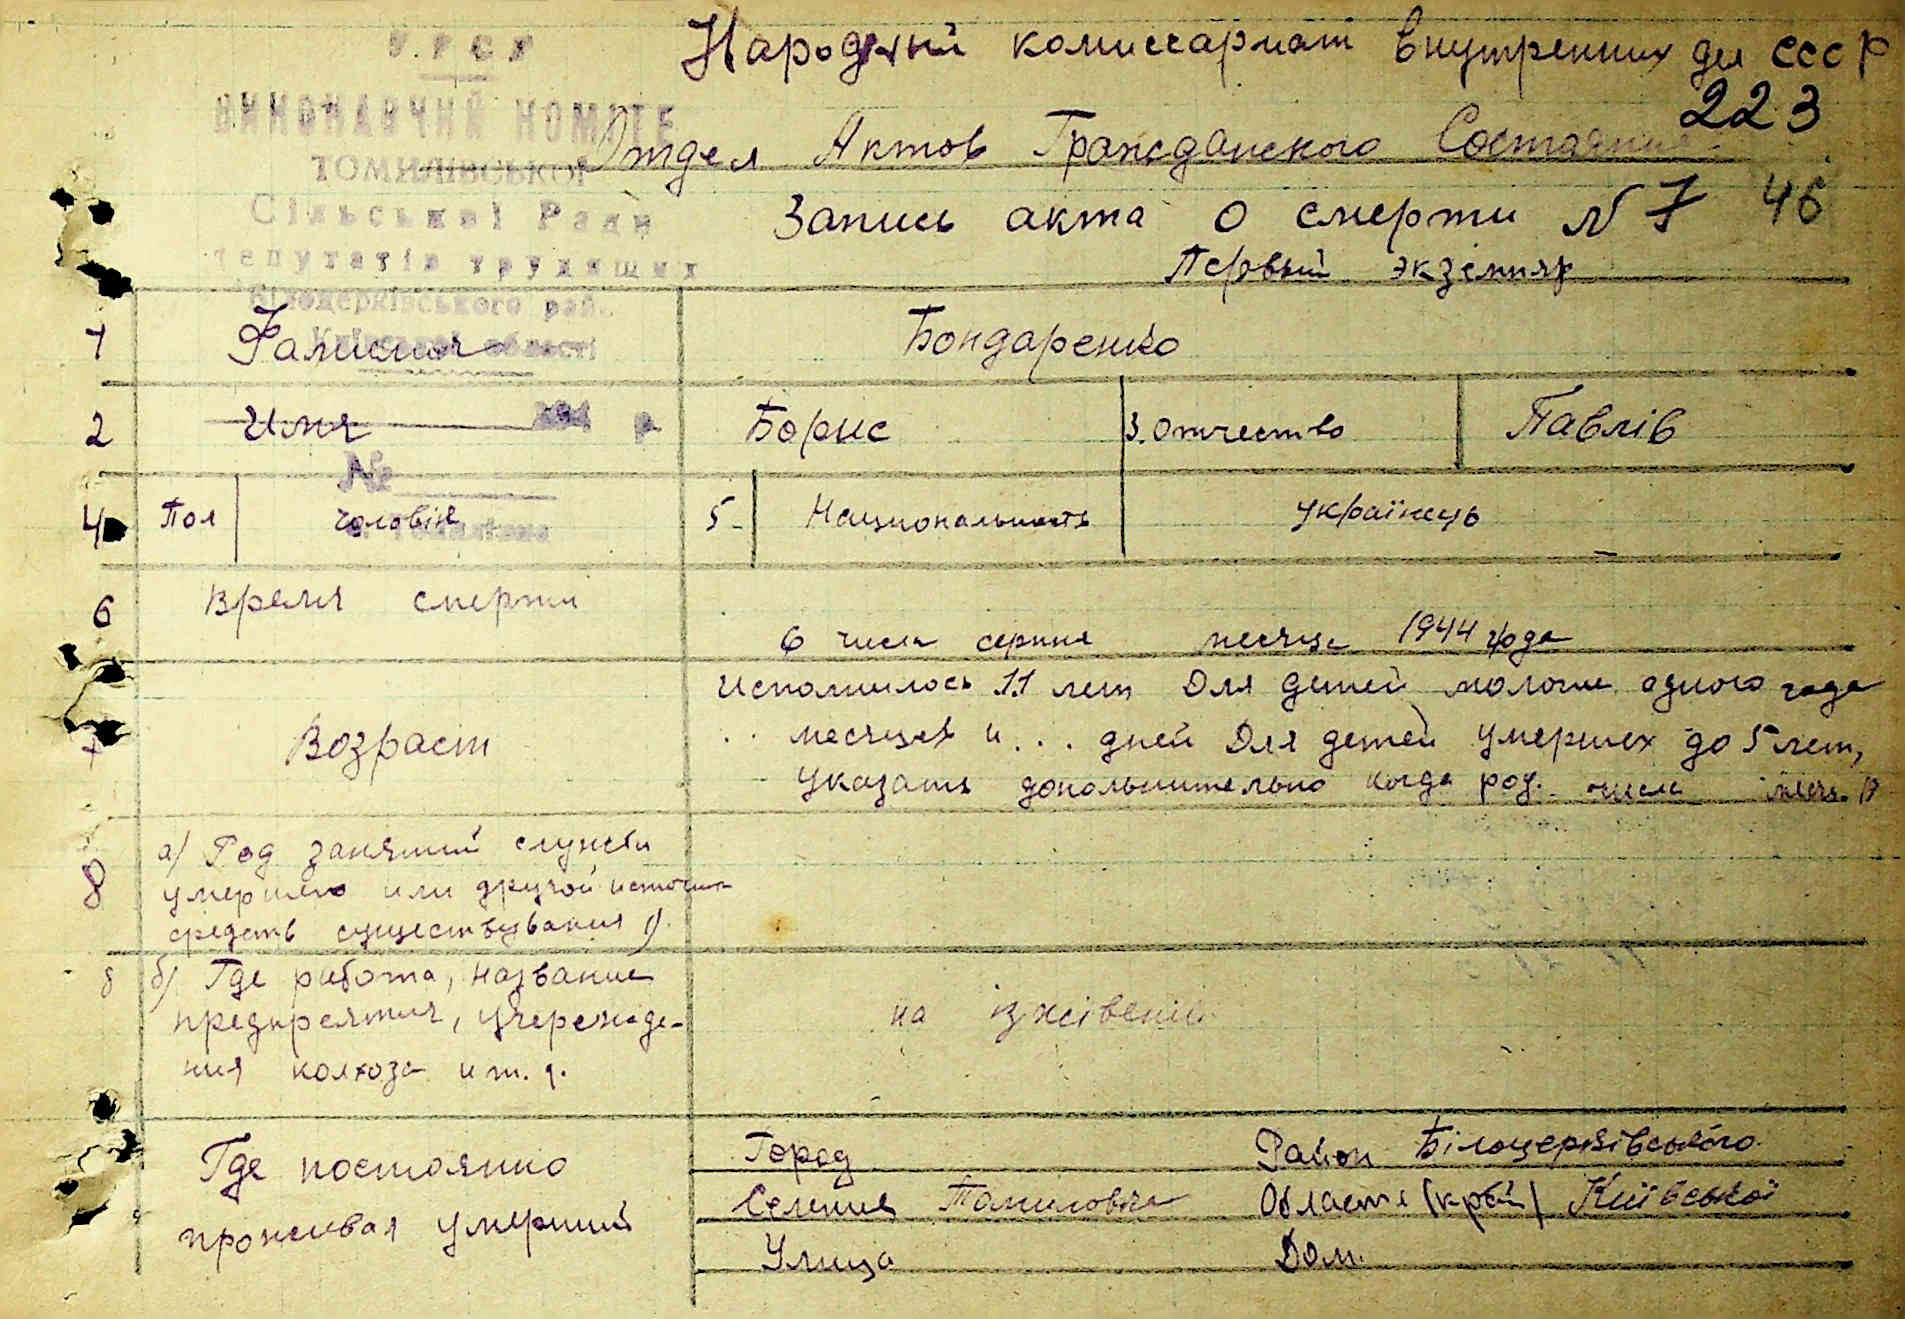 У.Р С Р
Народний комиссариат внутренних дел СССР
223
ВИКОНАВЧИЙ КОМІТЕ
Отдел Актов Гражданского Состояния
ТОМИЛІВСЬКОЇ
Сільської Ради
Запись акта о смерти N 7 46
депутатів трудящих
Первый экземпляр
Білоцерківського рай.
Київської області
1 Фамилия Бондаренко
2 Имя Борис 3. Отчество Павлів
194 р
№
4 Пол чоловік 5- Национальность українець
с. Томилівка
6 Время смерти
6 числа серпня месяца 1944 года
Исполнилось 11 лет Для детей моложе одного года
7 Возраст .. месяцев и ... дней Для детей умерших до 5 лет,
указать дополнительно когда род. числа
8 а) Род занятий службы
умершего или другой источник
средств существования 1).
8 б) Где работа, название
предприятия, учережде-
ния колхоза и т. д.
на іждівенії
Где постоянно
проживал умерший
Город Район Білоцерківського
Селение Томиловка Область (край) Київської
Улица Дом.